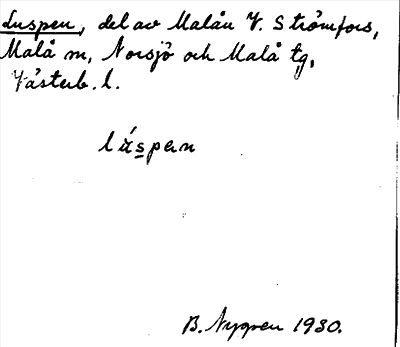 Luspen, del av Malån V. Strömfors,
Malå sn, Norsjö och Malå tg,
Västerb. l.
lu̇́s̱pɛn
B. Nygren 1930.